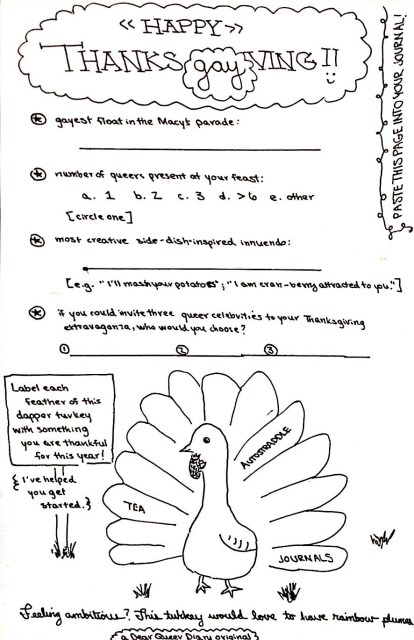 << HAPPY >>
THANKSgayVING!!
gayest float in the Macy's parade:
number of queers present at your feast:
a. 1 b. 2 c. 3 d. >6 e. other
[circle one]
most creative side-dish-inspired innuendo:
[e.g. "I'll mash your potatoes"; "I am cran-berry attracted to you."]
if you could invite three queer celebrities to your Thanksgiving
extravaganza, who would you choose?
① ② ③
PASTE THIS PAGE INTO YOUR JOURNAL!
Label each
feather of this
dapper turkey
with something
you are thankful
for this year!
{I've helped
you get
started.}
AUTOSTRADDLE
TEA
JOURNALS
Feeling ambitious? This turkey would love to have rainbow plumes
a Dear Queer Diary original